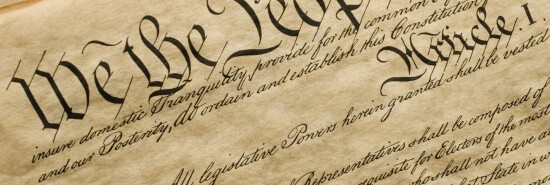 We the Peop
insure domestic Tranquility, provide for the common
and our Posterity, do ordain and establish this Constitution
Article. I.
All legislative Powers herein granted shall be vested
Representatives shall be composed of
requisite for Electors of the most
who shall not have a
State in w